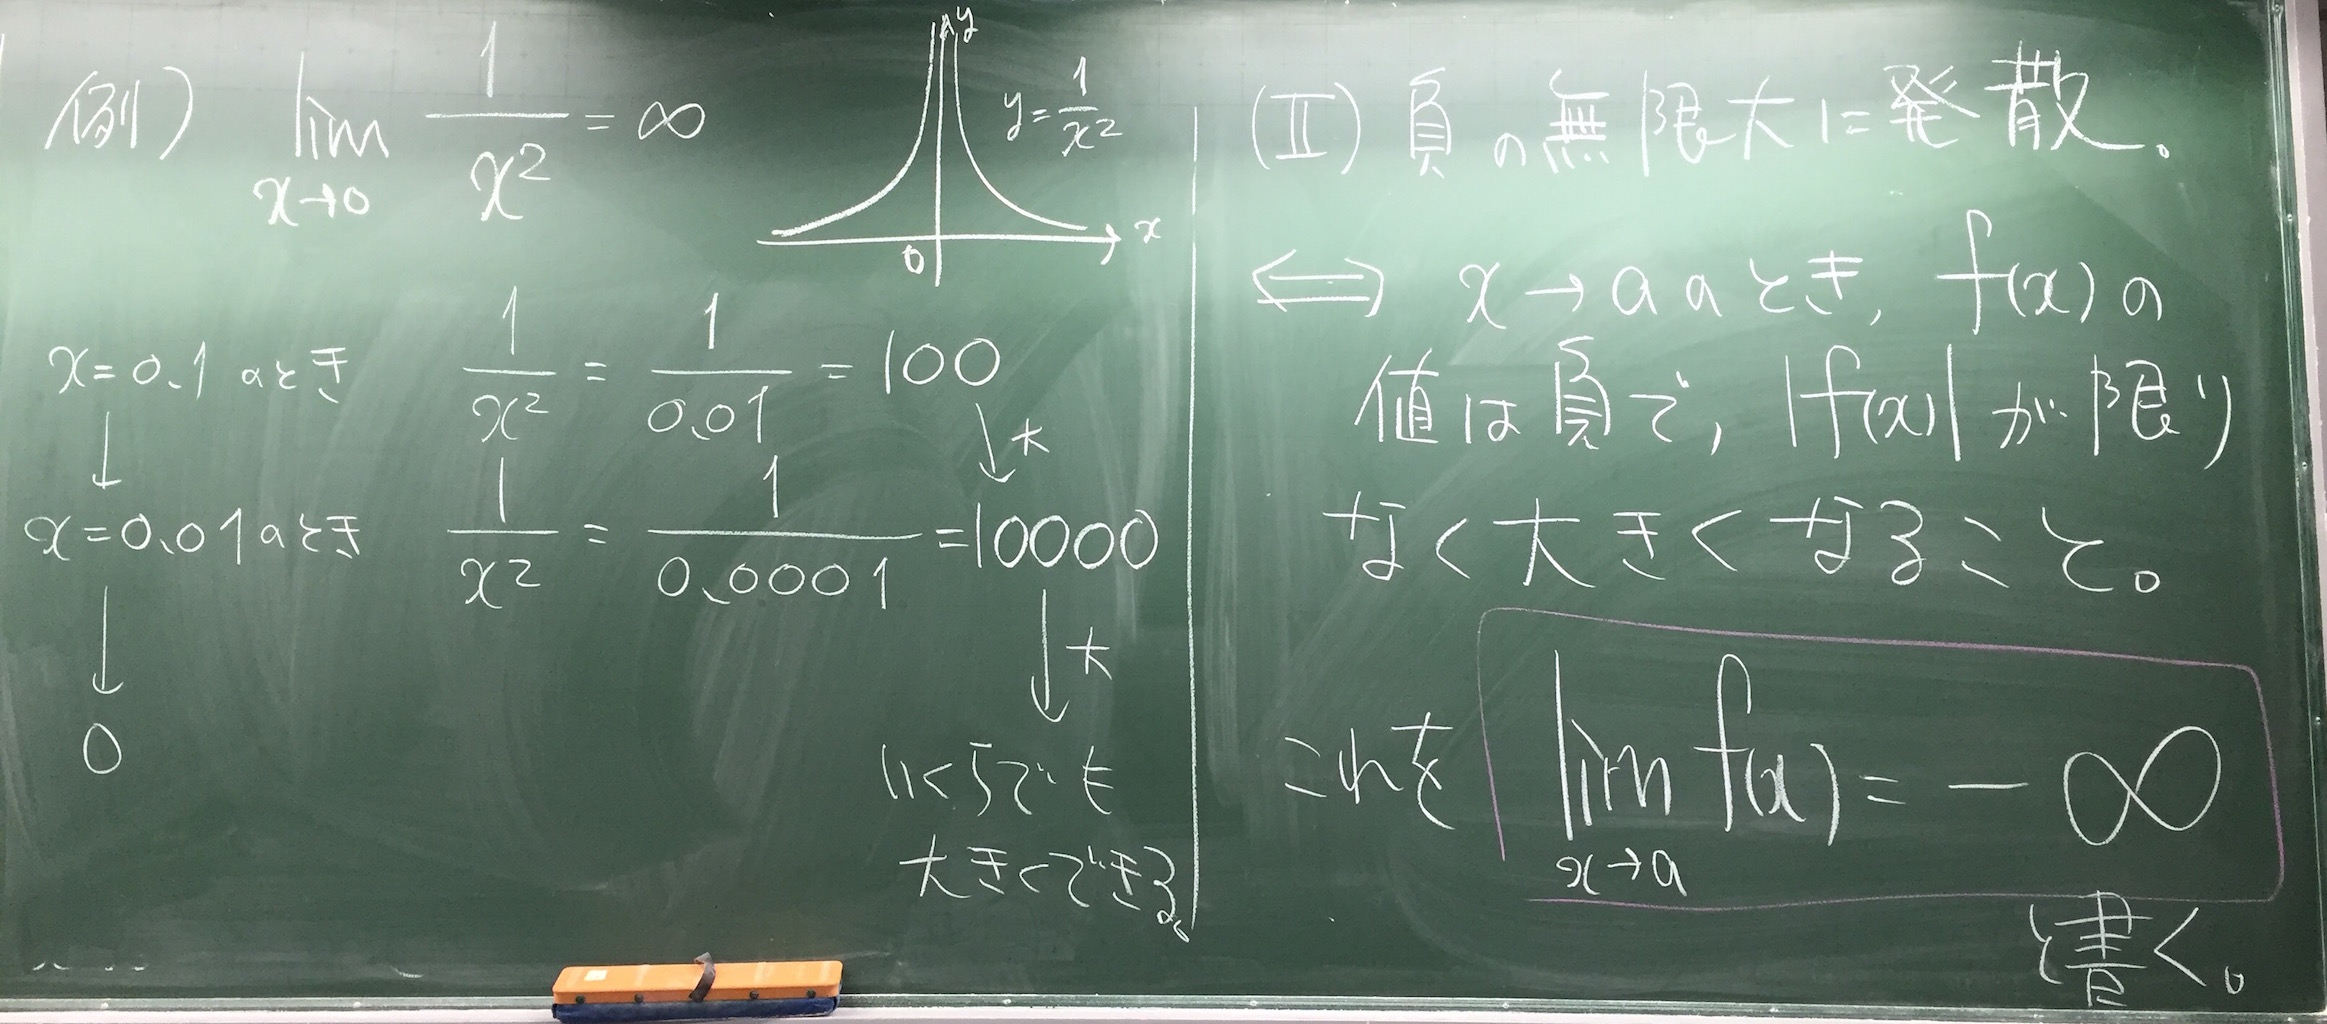 例) lim x→0 1/x² = ∞
y
y = 1/x²
x
0
x = 0.1 のとき 1/x² = 1/0.01 = 100
↓ ↓ 大
x = 0.01 のとき 1/x² = 1/0.0001 = 10000
↓ ↓ 大
0 いくらでも
大きくできる。
(Ⅱ) 負の無限大に発散。
⟺ x → a のとき, f(x) の
値は負で, |f(x)| が限り
なく大きくなること。
これを lim x→a f(x) = -∞
と書く。